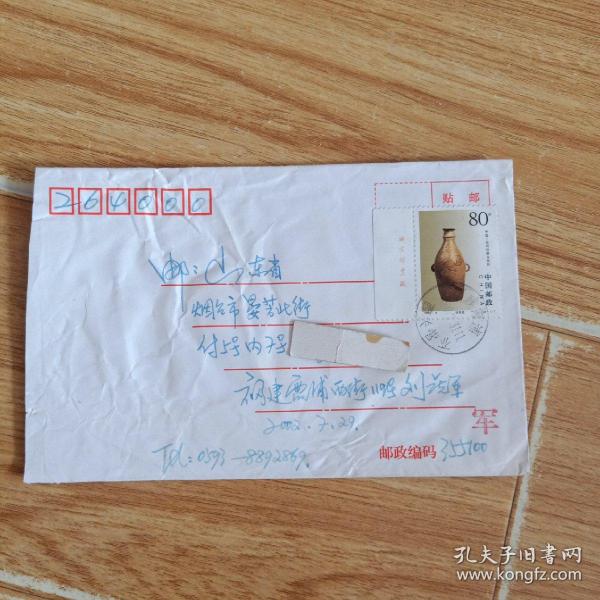 264000
贴 邮
80分
中国邮政
邮：山东省
烟台市晏若北街
付5号内7号
福建霞浦西街119号刘
2002.7.29.
军
Tel: 0593-8892869.
邮政编码 355100
孔夫子旧书网
www.kongfz.com